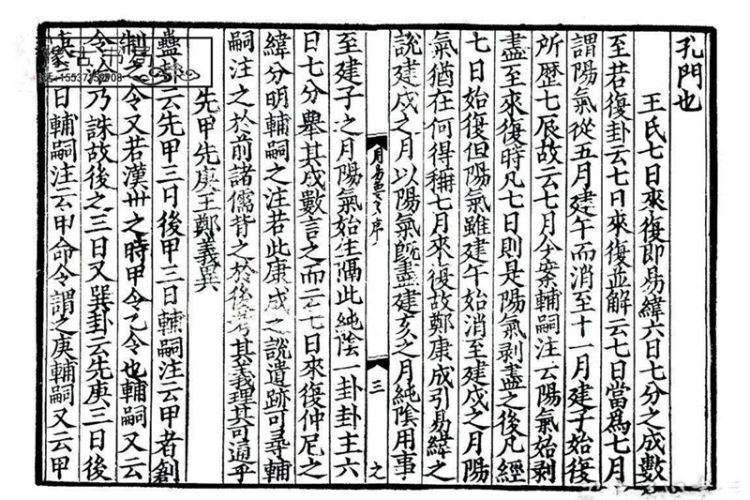 孔門也
王氏七日來復即易緯六日七分之成數
至若復卦云七日來復並解云七日當為七月
謂陽氣從五月建午而消至十一月建子始復
所歷七辰故云七月今案輔嗣注云陽氣始剥
盡至來復時凡七日則是陽氣剥盡之後凡經
七日始復但陽氣雖建午始消至建戌之月陽
氣猶在何得稱七月來復故鄭康成引易緯之
易序 三
說建戌之月以陽氣既盡建亥之月純陰用事
至建子之月陽氣始生隔此純陰一卦卦主六
日七分舉其成數言之而云七日來復仲尼之
緯分明輔嗣之注若此康成之說遺跡可尋輔
嗣注之於前諸儒背之於後考其義理其可通乎
先甲先庚王鄭義異
蠱卦云先甲三日後甲三日輔嗣注云甲者創
制之令又若漢卋之時甲令乙令也輔嗣又云
令洽乃誅故後之三日又巽卦云先庚三日後
庚三日輔嗣注云申命令謂之庚輔嗣又云甲